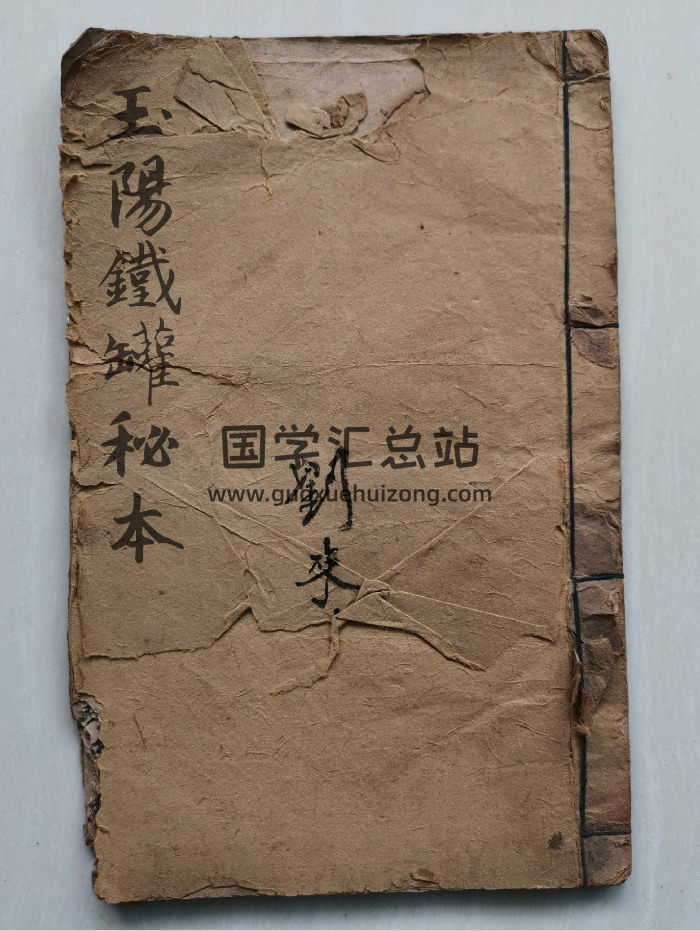 玉陽鐵罐秘本
国学汇总站
www.guoxuehuizong.com
劉來